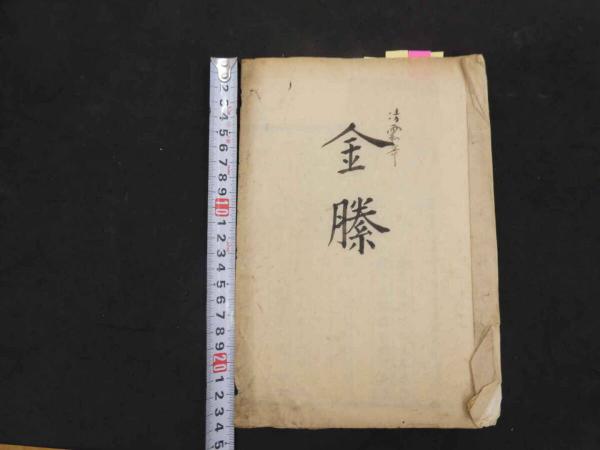 金縢
2 3 4 5 6 7 8 9 10 1 2 3 4 5 6 7 8 9 20 1 2 3 4 5